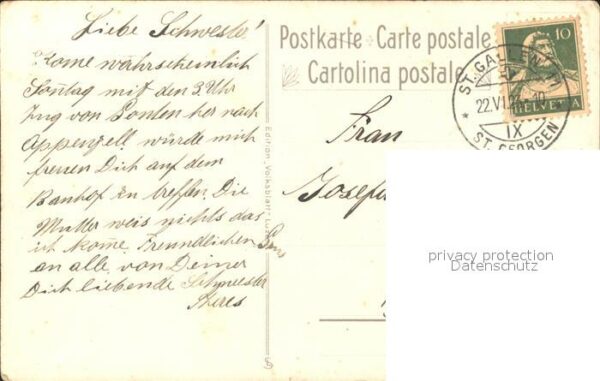 Liebe Schwester!
Kome währscheinlich
Sontag mit den 3. Uhr
Zug von Gonten her nach
Appenzell würde mich
freuen Dich auf dem
Banhof zu treffen. Die
Mutter weis nichts das
ich kome. Freundlichen Grus
an alle von Deiner
Dich liebende Schwester
Postkarte - Carte postale
Cartolina postale
Edition Volksblatt
ST. GALLEN
22.VI.
IX
ST. GEORGEN
10
HELVETIA
Frau
privacy protection
Datenschutz